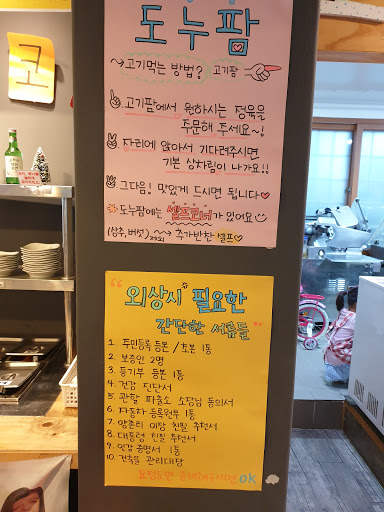 코
도누팜
고기먹는 방법? 고기팜
고기팜에서 원하시는 정육을
주문해 주세요~!
자리에 앉아서 기다려주시면
기본 상차림이 나가요!!
그다음! 맛있게 드시면 됩니다
도누팜에는 셀프코너가 있어요
(상추, 버섯) 추가반찬 셀프
"외상시 필요한
간단한 서류들"
1. 주민등록 등본 / 초본 1통
2. 보증인 2명
3. 등기부 등본 1통
4. 건강 진단서
5. 관할 파출소 소장님 동의서
6. 자동차 등록원부 1통
7. 양촌리 이장 친필 추천서
8. 대통령 친필 추천서
9. 인감 증명서 1통
10. 건축물 관리대장
ok